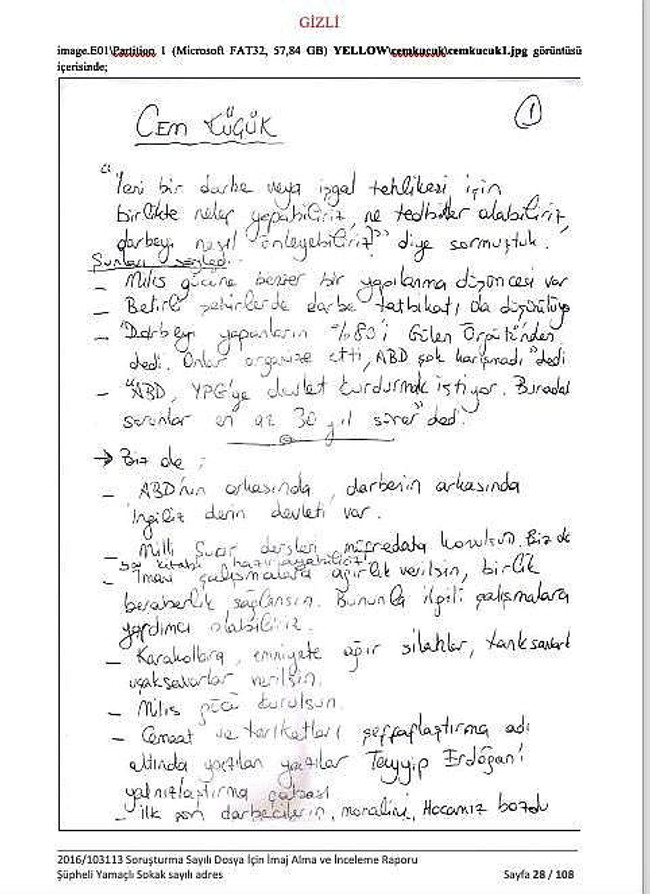 GİZLİ
image.E01\Partition 1 (Microsoft FAT32, 57,84 GB) YELLOW\cemkucuk\cemkucuk1.jpg görüntüsü
içerisinde;
CEM KÜÇÜK
1
"Yeni bir darbe veya işgal tehlikesi için
birlikte neler yapabiliriz, ne tedbirler alabiliriz,
darbeyi nasıl önleyebiliriz?" diye sormuştuk.
Şunları söyledi.
- Milis gücüne benzer bir yapılanma düşüncesi var
- Belirli şehirlerde darbe tatbikatı da düşünülüyo
- "Darbeyi yapanların %80'i Gülen Örgütü'nden
dedi. Onlar organize etti, ABD çok karışmadı" dedi
- "ABD, YPG'ye devlet kurdurmak istiyor. Buradaki
sorunlar en az 30 yıl sürer" dedi.
→ Biz de;
- ABD'nin arkasında, darbenin arkasında
İngiliz derin devleti var.
- Milli Şuur dersleri müfredata konulsun. Biz de
kitabı hazırlayabiliriz
- İmani çalışmalara ağırlık verilsin, birlik
beraberlik sağlansın. Bununla ilgili çalışmalara
yardımcı olabiliriz.
- Karakollara, emniyete ağır silahlar, tanksavar
uçaksavarlar verilsin.
- Milis gücü kurulsun.
- Cemaat ve tarikatları şeffaflaştırma adı
altında yazılan yazılar Tayyip Erdoğan'ı
yalnızlaştırma çabası
- İlk gün darbecilerin, moralini, Hocamız bozdu
2016/103113 Soruşturma Sayılı Dosya İçin İmaj Alma ve İnceleme Raporu
Şüpheli Yamaçlı Sokak sayılı adres
Sayfa 28 / 108